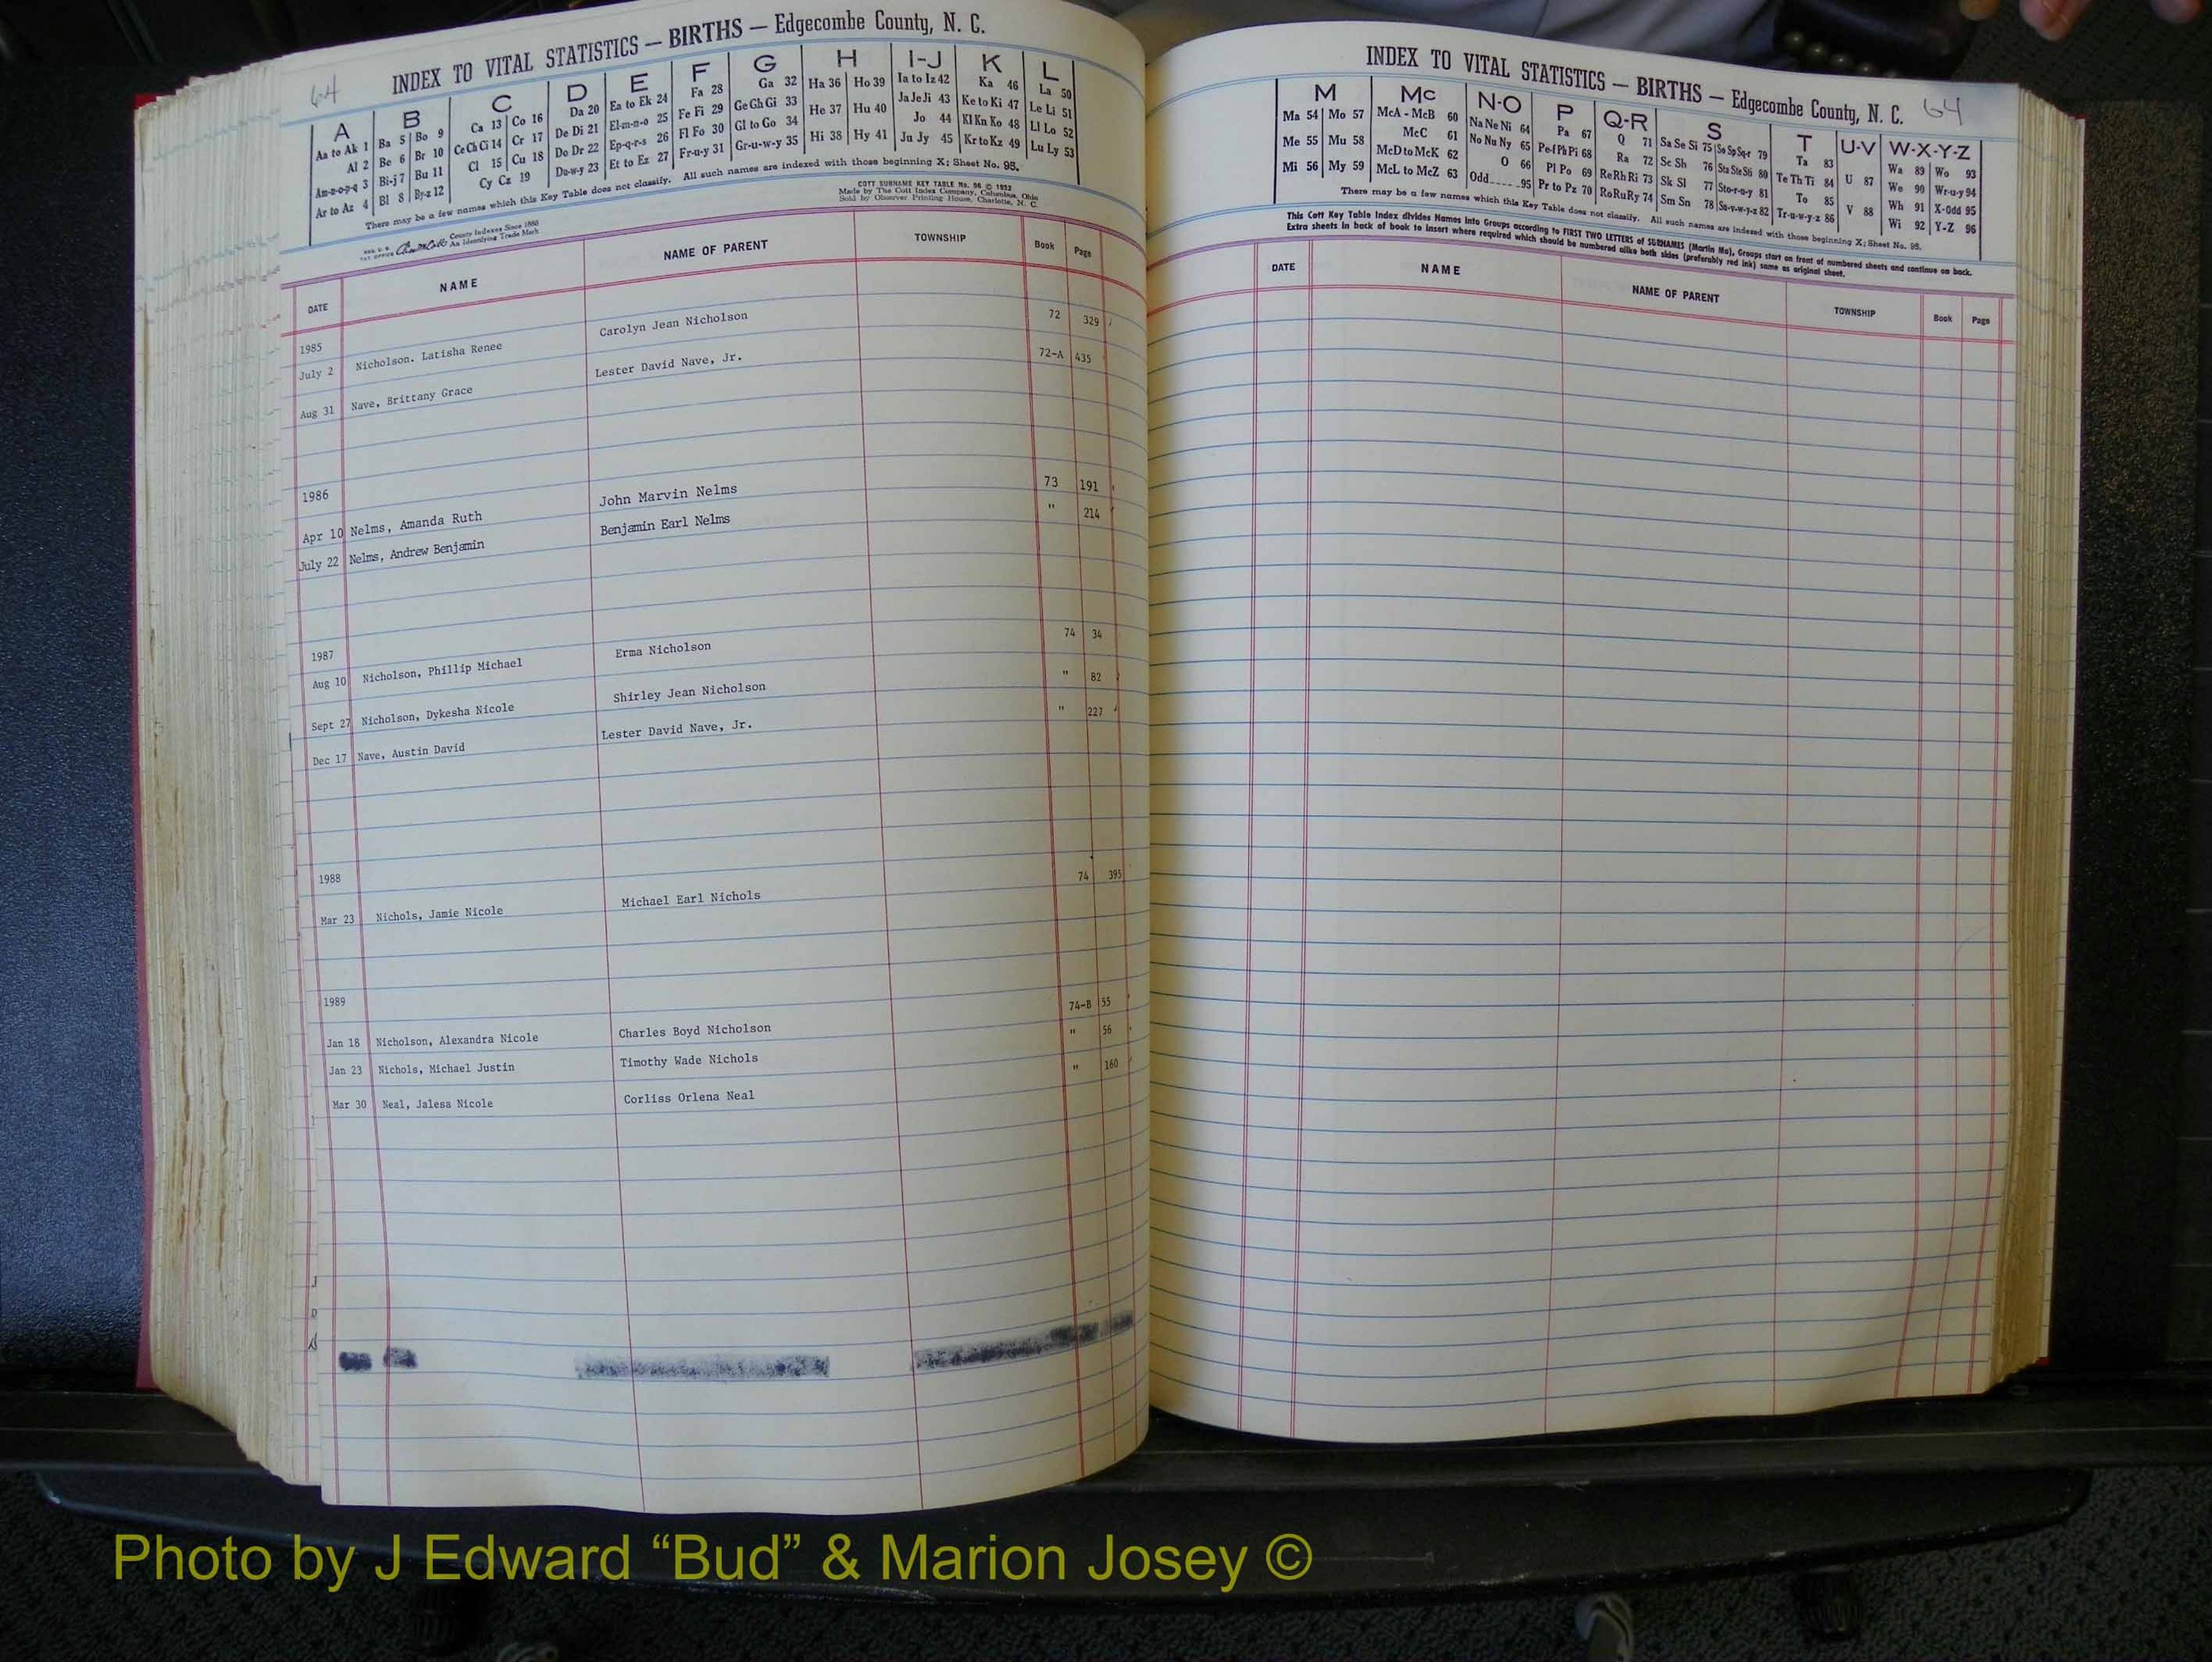 64 INDEX TO VITAL STATISTICS — BIRTHS — Edgecombe County, N. C.
A B C D E F G H I-J K L
Aa to Ak 1 Ba 5 Bo 9 Ca 13 Co 16 Da 20 Ea to Ek 24 Fa 28 Ga 32 Ha 36 Ho 39 Ia to Iz 42 Ka 46 La 50
Al 2 Be 6 Br 10 Ce Ch Ci 14 Cr 17 De Di 21 El-m-n-o 25 Fe Fi 29 Ge Gh Gi 33 He 37 Hu 40 Ja Je Ji 43 Ke to Ki 47 Le Li 51
Am-n-o-p-q 3 Bi-j 7 Bu 11 Cl 15 Cu 18 Do Dr 22 Ep-q-r-s 26 Fl Fo 30 Gl to Go 34 Hi 38 Hy 41 Jo 44 Kl Kn Ko 48 Ll Lo 52
Ar to Az 4 Bl 8 By-z 12 Cy Cz 19 Du-w-y 23 Et to Ez 27 Fr-u-y 31 Gr-u-w-y 35 Ju Jy 45 Kr to Kz 49 Lu Ly 53
There may be a few names which this Key Table does not classify. All such names are indexed with those beginning X; Sheet No. 95.
COTT SURNAME KEY TABLE No. 96 © 1952
Made by The Cott Index Company, Columbus, Ohio
Sold by Observer Printing House, Charlotte, N. C.
County Indexes Since 1888
An Identifying Trade Mark
DATE NAME NAME OF PARENT TOWNSHIP Book Page
1985
July 2 Nicholson. Latisha Renee Carolyn Jean Nicholson 72 329
Aug 31 Nave, Brittany Grace Lester David Nave, Jr. 72-A 435
1986
Apr 10 Nelms, Amanda Ruth John Marvin Nelms 73 191
July 22 Nelms, Andrew Benjamin Benjamin Earl Nelms " 214
1987
Aug 10 Nicholson, Phillip Michael Erma Nicholson 74 34
Sept 27 Nicholson, Dykesha Nicole Shirley Jean Nicholson " 82
Dec 17 Nave, Austin David Lester David Nave, Jr. " 227
1988
Mar 23 Nichols, Jamie Nicole Michael Earl Nichols 74 395
1989
Jan 18 Nicholson, Alexandra Nicole Charles Boyd Nicholson 74-B 55
Jan 23 Nichols, Michael Justin Timothy Wade Nichols " 56
Mar 30 Neal, Jalesa Nicole Corliss Orlena Neal " 160
INDEX TO VITAL STATISTICS — BIRTHS — Edgecombe County, N. C. 64
M Mc N-O P Q-R S T U-V W-X-Y-Z
Ma 54 Mo 57 McA - McB 60 Na Ne Ni 64 Pa 67 Q 71 Sa Se Si 75 So Sp Sq-r 79 Ta 83 U 87 Wa 89 Wo 93
Me 55 Mu 58 McC 61 No Nu Ny 65 Pe-f Ph Pi 68 Ra 72 Sc Sh 76 Sta Ste Sti 80 Te Th Ti 84 V 88 We 90 Wr-u-y 94
Mi 56 My 59 McD to McK 62 O 66 Pl Po 69 Re Rh Ri 73 Sk Sl 77 Sto-r-u-y 81 To 85 Wh 91 X-Odd 95
McL to McZ 63 Odd 95 Pr to Pz 70 Ro Ru Ry 74 Sm Sn 78 Su-v-w-y-z 82 Tr-u-w-y-z 86 Wi 92 Y-Z 96
There may be a few names which this Key Table does not classify. All such names are indexed with those beginning X; Sheet No. 95.
This Cott Key Table Index divides Names into Groups according to FIRST TWO LETTERS of SURNAMES (Martin Ma), Groups start on front of numbered sheets and continue on back.
Extra sheets in back of book to insert where required which should be numbered alike both sides (preferably red ink) same as original sheet.
DATE NAME NAME OF PARENT TOWNSHIP Book Page
Photo by J Edward “Bud” & Marion Josey ©